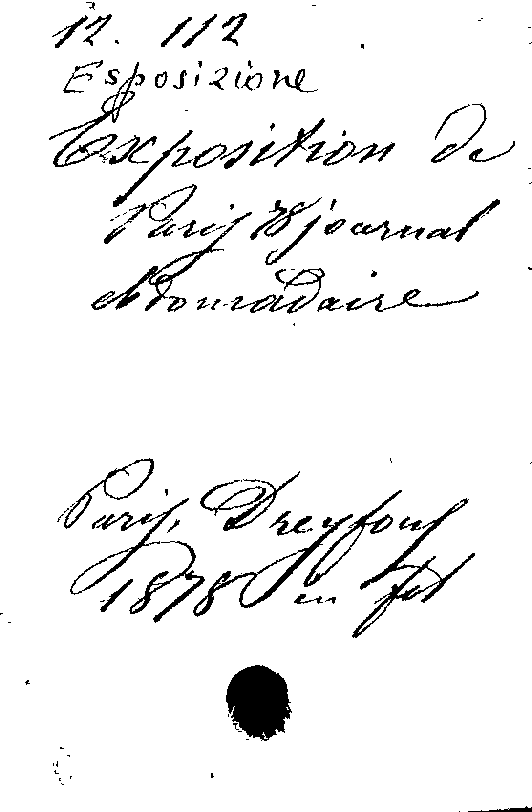 12. 112
Esposizione
Exposition de
Paris 78 journal
ebdomadaire
Paris, Dreyfous
1878 in fol